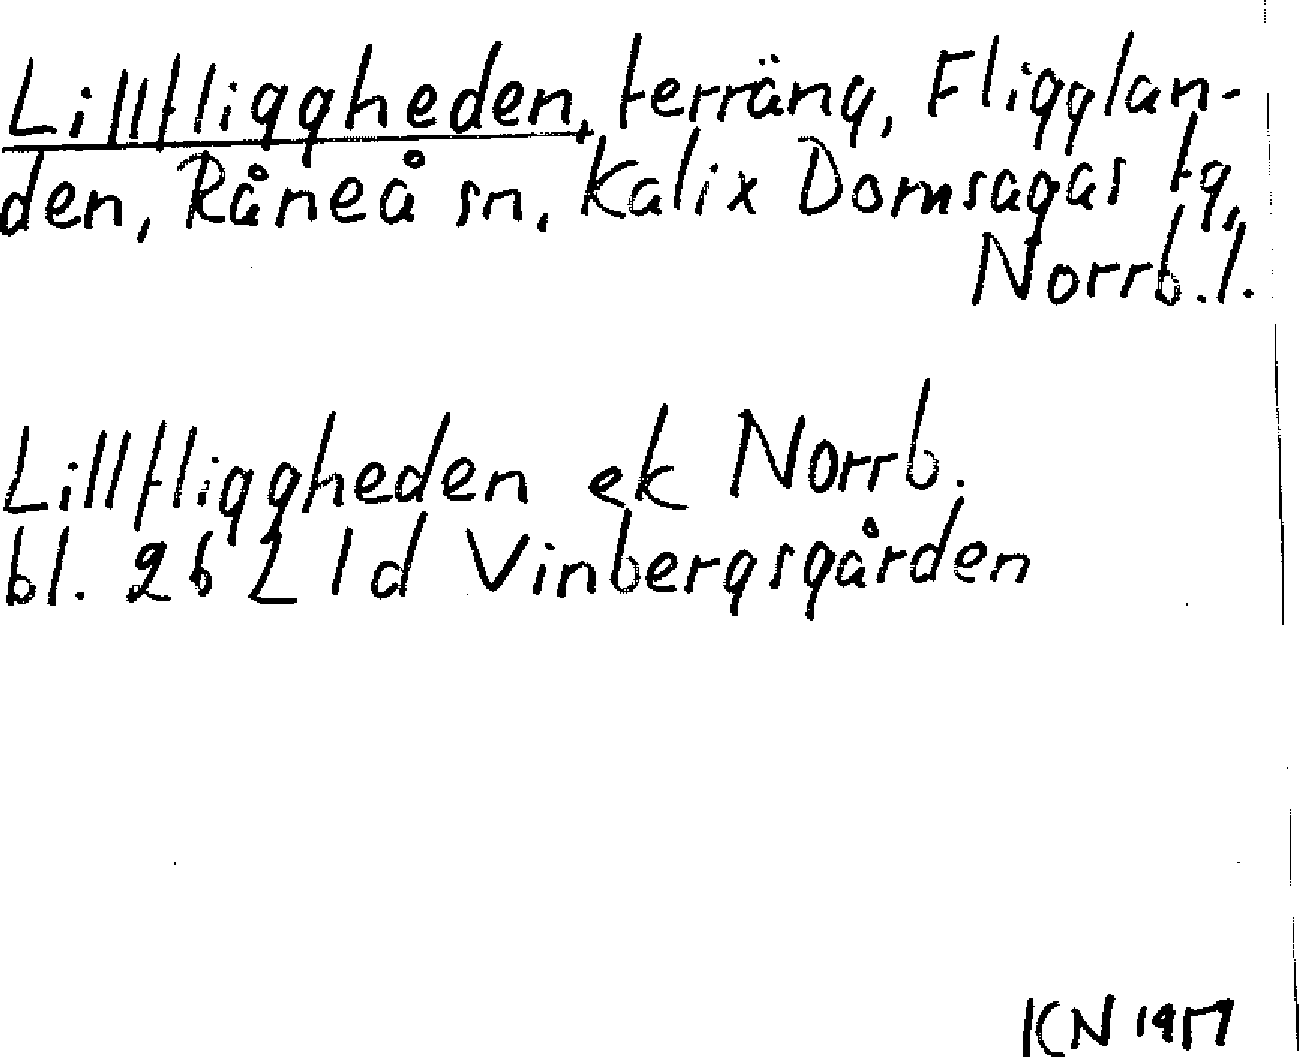 Lillfliggheden, terräng, Fligglan-
den, Råneå sn, Kalix Domsagas tg,
Norrb. l.
Lillfliggheden ek Norrb.
bl. 26 L 1d Vinbergsgården
KN